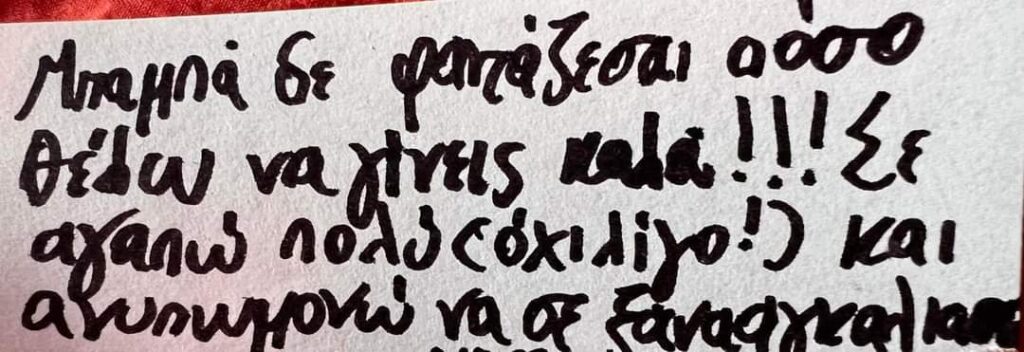 Μπαμπά δε φαντάζεσαι πόσο
θέλω να γίνεις καλά!!! Σε
αγαπώ πολύ (όχι λίγο!) και
ανυπωμονώ να σε ξανααγκαλιασω